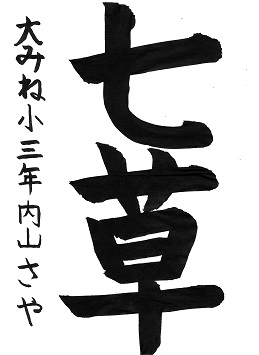 七草
大みね小三年内山さや